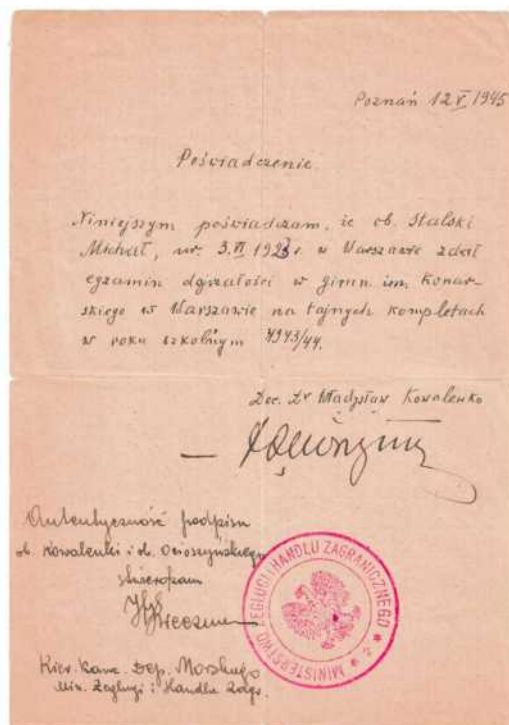 Poznań 12 V 1945
Poświadczenie.
Niniejszym poświadczam, że ob. Stalski
Michał, ur. 3. VI 1923 r. w Warszawie zdał
egzamin dojrzałości w gimn. im. Konar-
skiego w Warszawie na tajnych kompletach
w roku szkolnym 1943/44.
Doc. Dr Władysław Kowalenko
Autentyczność podpisu
ob. Kowalenki i ob. Ocioszyńskiego
stwierdzam
Kier. Kanc. Dep. Morskiego
Min. Żeglugi i Handlu Zagr.
MINISTERSTWO ŻEGLUGI I HANDLU ZAGRANICZNEGO * 2 *